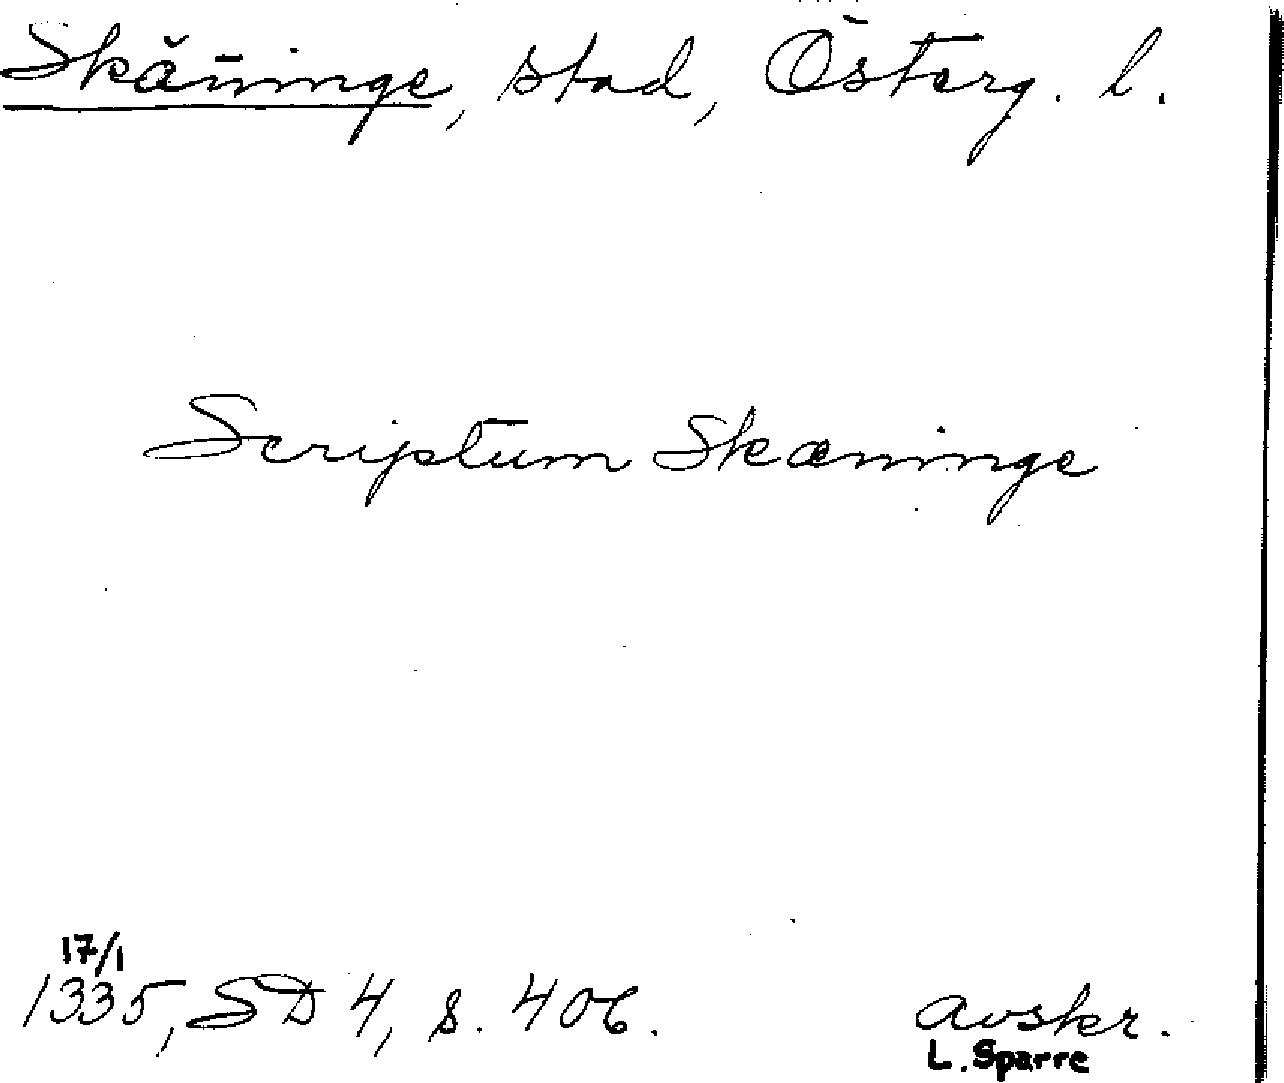 Skäninge, stad, Österg. l.
Scriptum Skæninge
17/1
1335, SD 4, s. 406.
avskr.
L. Sparre